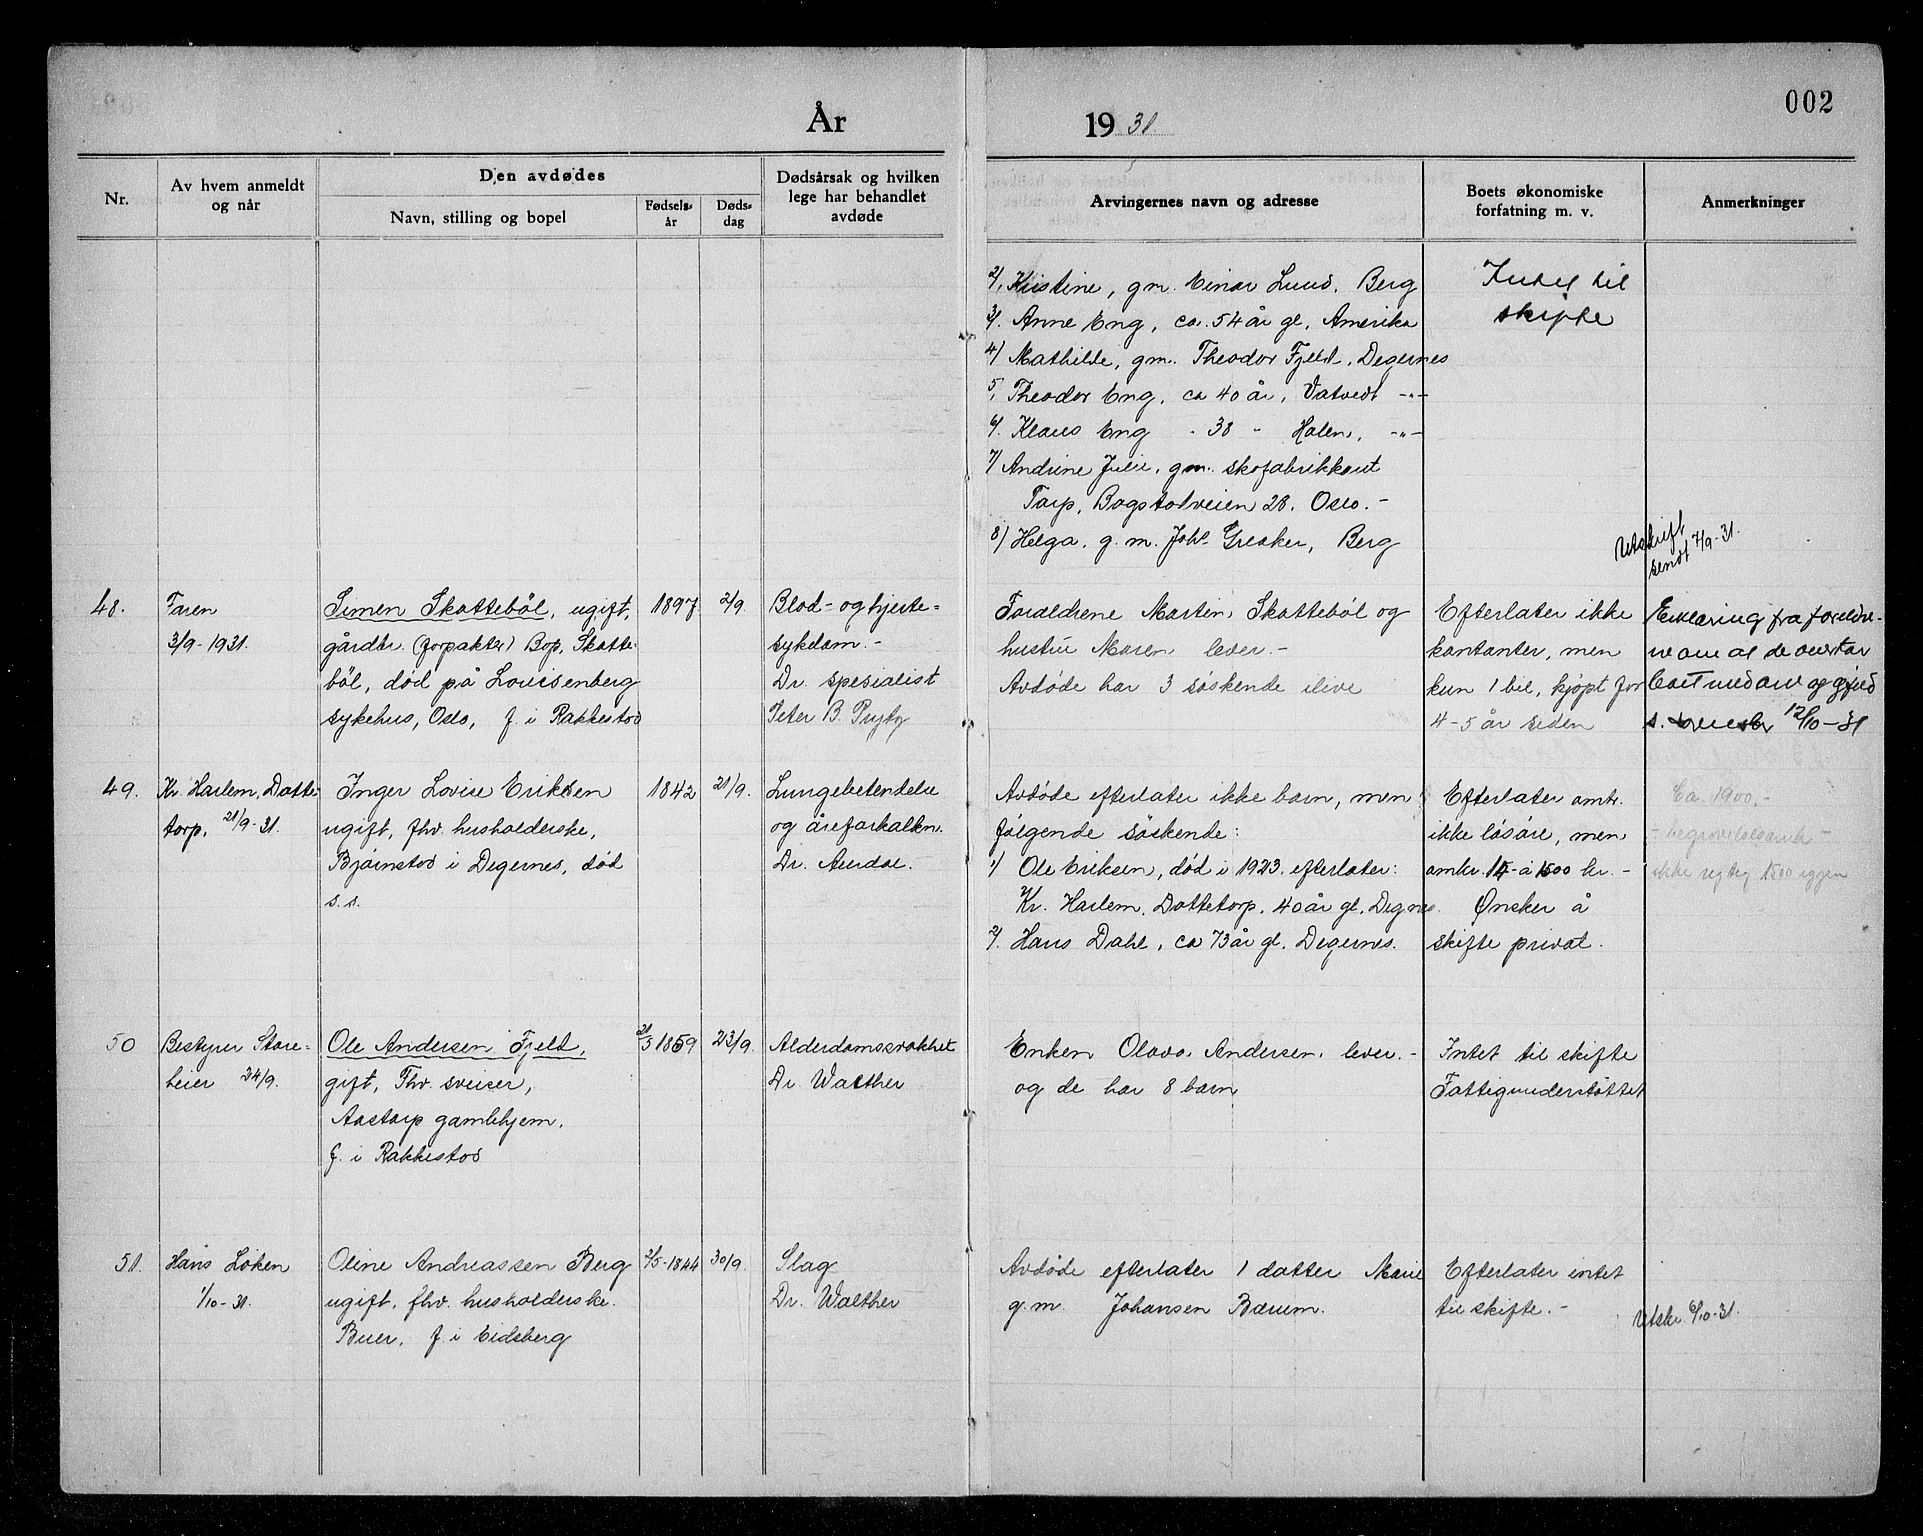 002
År 1931
Nr.
Av hvem anmeldt
og når
Den avdødes
Navn, stilling og bopel
Fødsels-
år
Døds-
dag
Dødsårsak og hvilken
lege har behandlet
avdøde
Arvingernes navn og adresse
Boets økonomiske
forfatning m. v.
Anmerkninger
2/, Kristine, gm. Einar Lund, Berg
3/. Anne Eng, ca. 54 år gl, Amerika
4) Mathilde, gm. Theodor Fjeld, Degernes
5, Theodor Eng, ca 40 år, Vatvedt -"-
6/. Klaus Eng " 38 " Holen, -"-
7/ Andrine Julie, gm. skofabrikkant
Torp, Bogstadveien 28, Oslo.-
8) Helga, g. m. Johs Greaker, Berg
Intet til
skifte
Utskrift
sendt 7/9-31.
48.
Faren
3/9-1931.
Simen Skattebøl, ugift,
gårdbr. (forpakter) Bop. Skatte-
bøl, død på Lovisenberg
sykehus, Oslo, f. i Rakkestad
1897
2/9.
Blod- og hjerte-
sykdom.-
Dr. spesialist
Peter B.
Foreldrene Martin Skattebøl og
hustru Maren lever.-
Avdøde har 3 søskende ilive
Efterlater ikke
kontanter, men
kun 1 bil, kjøpt for
4-5 år siden
Erklæring fra foreldre-
ne om at de overtar
boet med arv og gjeld
s. 12/10-31
49.
Kr. Harlem, Dotte-
torp, 21/9-31.
Inger Lovise Eriksen
ugift, fhv. husholderske,
Bjørnstad i Degernes, død
s. s.
1842
21/9.
Lungebetendelse
og åreforkalkn.
Dr. Aurdal.
Avdøde efterlater ikke barn, men
følgende søskende:
1) Ole Eriksen, død i 1923, efterlater:
Kr. Harlem, Dottetorp, 40 år gl, Degnes.
2/. Hans Dahl, ca 73 år gl, Degernes.
Efterlater omtr.
ikke løsøre, men
omkr. 14- à 1500 kr.-
Ønsker å
skifte privat.
Ca 1900,-
- begravelsesomk -
ikke 1500 igjen
50
Bestyrer Store-
heier 24/9.
Ole Andersen Fjeld,
gift, Fhv. sveiser,
Aastorp gamlehjem,
f. i Rakkestad
21/3 1859
23/9.
Alderdomssvakhet
Dr. Walther
Enken Olava Andersen lever.-
og de har 8 barn
Intet til skifte
Fattigunderstøttet
51.
Hans Løken
1/10-31.
Oline Andreassen Berg
ugift, fhv. husholderske.
Buer, f. i Eidsberg
2/5-1844
30/9.
Slag
Dr. Walther
Avdøde efterlater 1 datter Marie
g. m. Johansen Bærum.
Efterlater intet
til skifte.-
Utskr. 6/10-31.